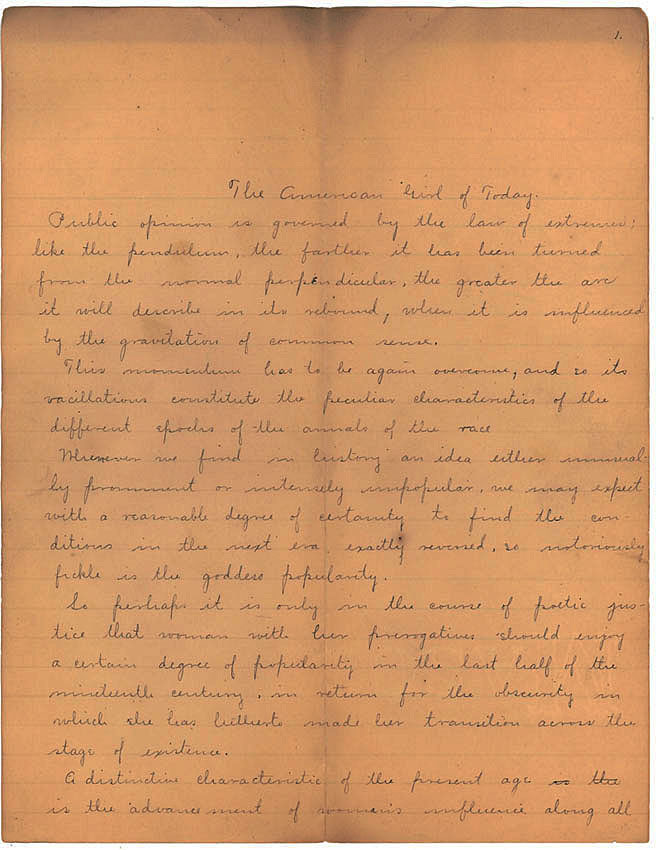 1.
The American Girl of Today.
Public opinion is governed by the law of extremes;
like the pendulum, the farther it has been turned
from the normal perpendicular, the greater the arc
it will describe in its rebound, when it is influenced
by the gravitation of common sense.
This momentum has to be again overcome, and so its
vacillations constitute the peculiar characteristics of the
different epochs of the annals of the race
Whenever we find in history an idea either unusual-
ly prominent or intensely unpopular, we may expect
with a reasonable degree of certainty to find the con-
ditions in the next era exactly reversed, so notoriously
fickle is the goddess popularity.
So perhaps it is only in the course of poetic jus-
tice that woman with her prerogatives should enjoy
a certain degree of popularity in the last half of the
nineteenth century, in return for the obscurity in
which she has hitherto made her transition across the
stage of existence.
A distinctive characteristic of the present age is the
is the advancement of woman's influence along all